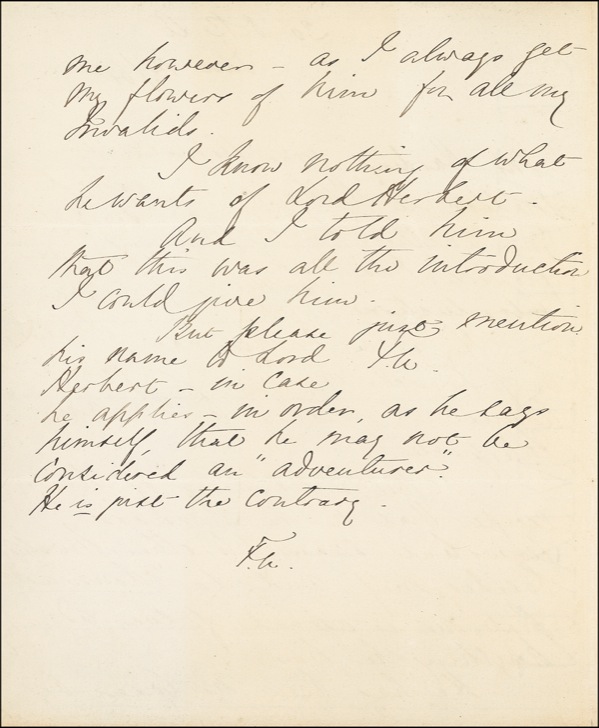 me however – as I always get
my flowers of him for all my
Invalids.
I know nothing of what
he wants of Lord Herbert –
And I told him
that this was all the introduction
I could give him.
But please just mention
his name to Lord F.N.
Herbert – in case
he applies – in order, as he says
himself, that he may not be
considered an "adventurer".
He is just the contrary.
F.N.